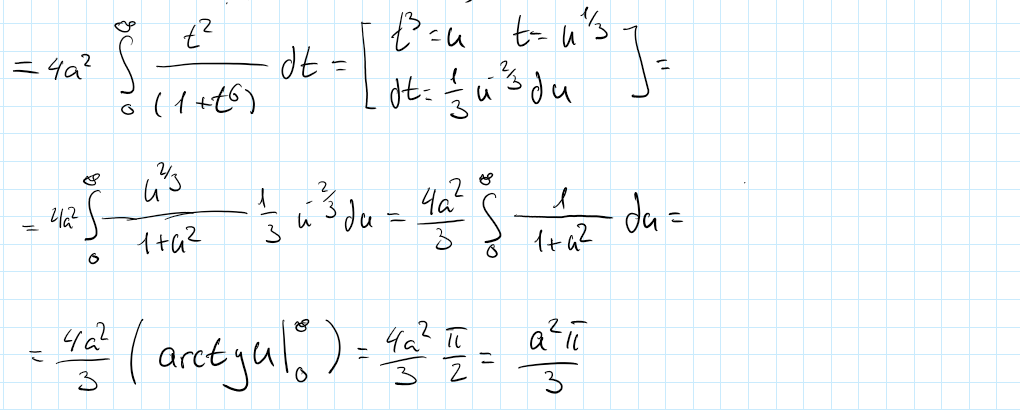 = 4a² ∫₀^∞ t²/(1+t⁶) dt = [ t³=u t=u^{1/3} dt=1/3 u^{-2/3} du ] =
= 4a² ∫₀^∞ u^{2/3}/(1+u²) 1/3 u^{-2/3} du = 4a²/3 ∫₀^∞ 1/(1+u²) du =
= 4a²/3 ( arctgu|₀^∞ ) = 4a²/3 π/2 = a²π/3